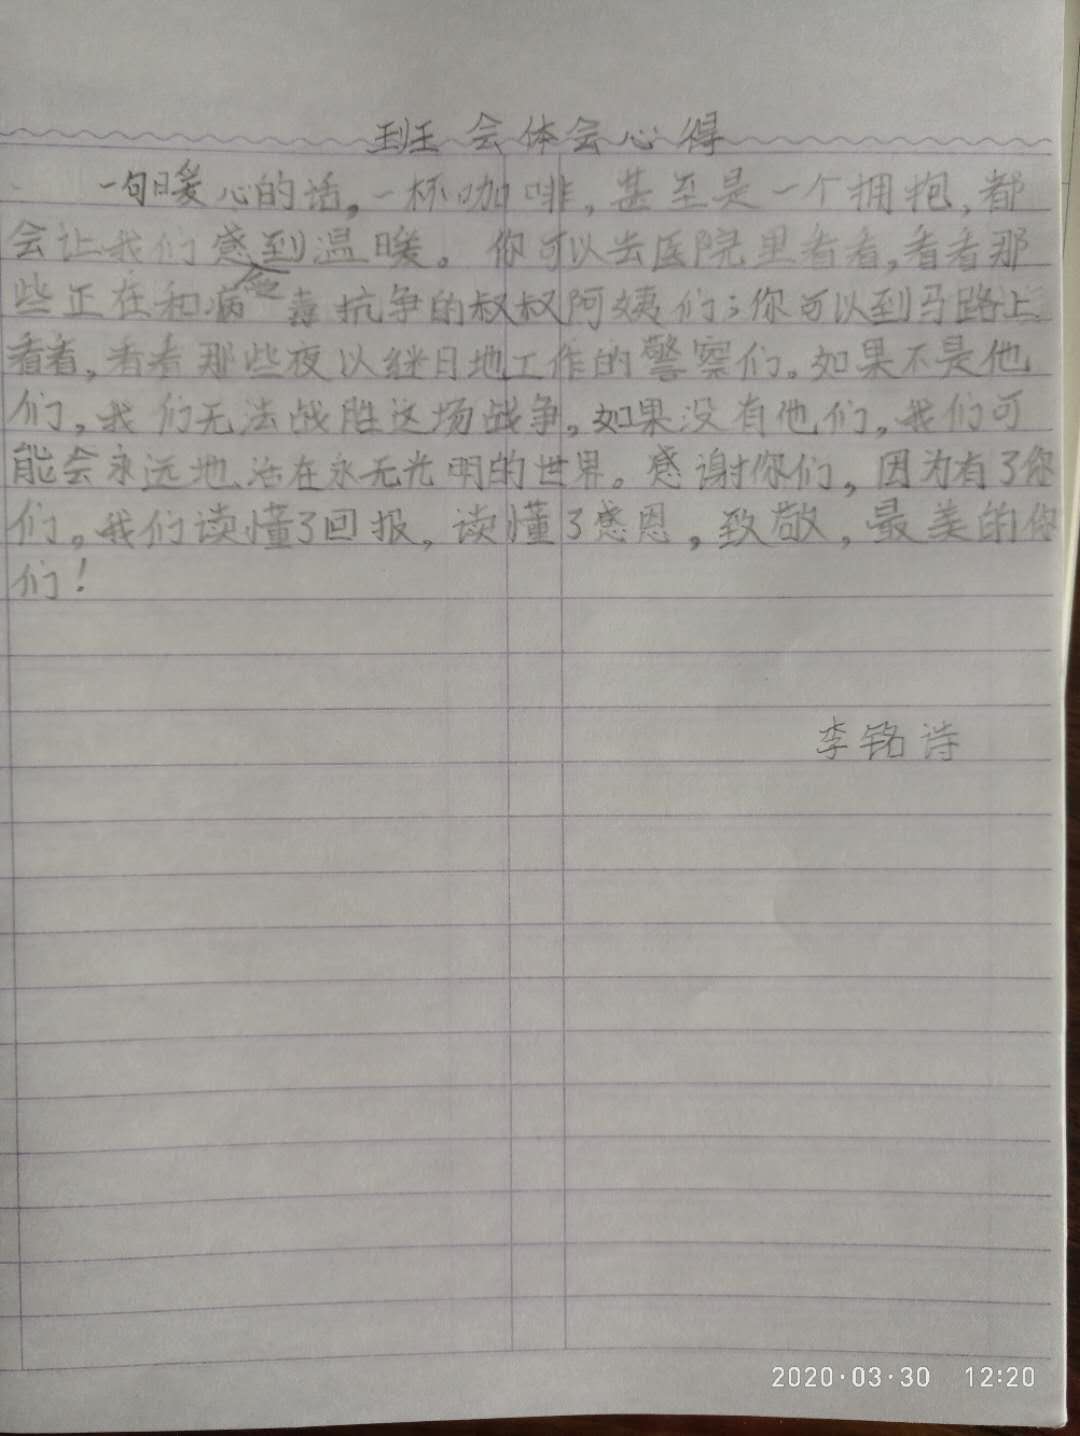 班会体会心得
一句暖心的话，一杯咖啡，甚至是一个拥抱，都
会让我们感到温暖。你可以去医院里看看，看看那
些正在和病毒抗争的叔叔阿姨们；你可以到马路上
看看，看看那些夜以继日地工作的警察们。如果不是他
们，我们无法战胜这场战争，如果没有他们，我们可
能会永远地活在永无光明的世界。感谢你们，因为有了你
们，我们读懂了回报，读懂了感恩，致敬，最美的你
们！
李铭诗
2020·03·30 12:20